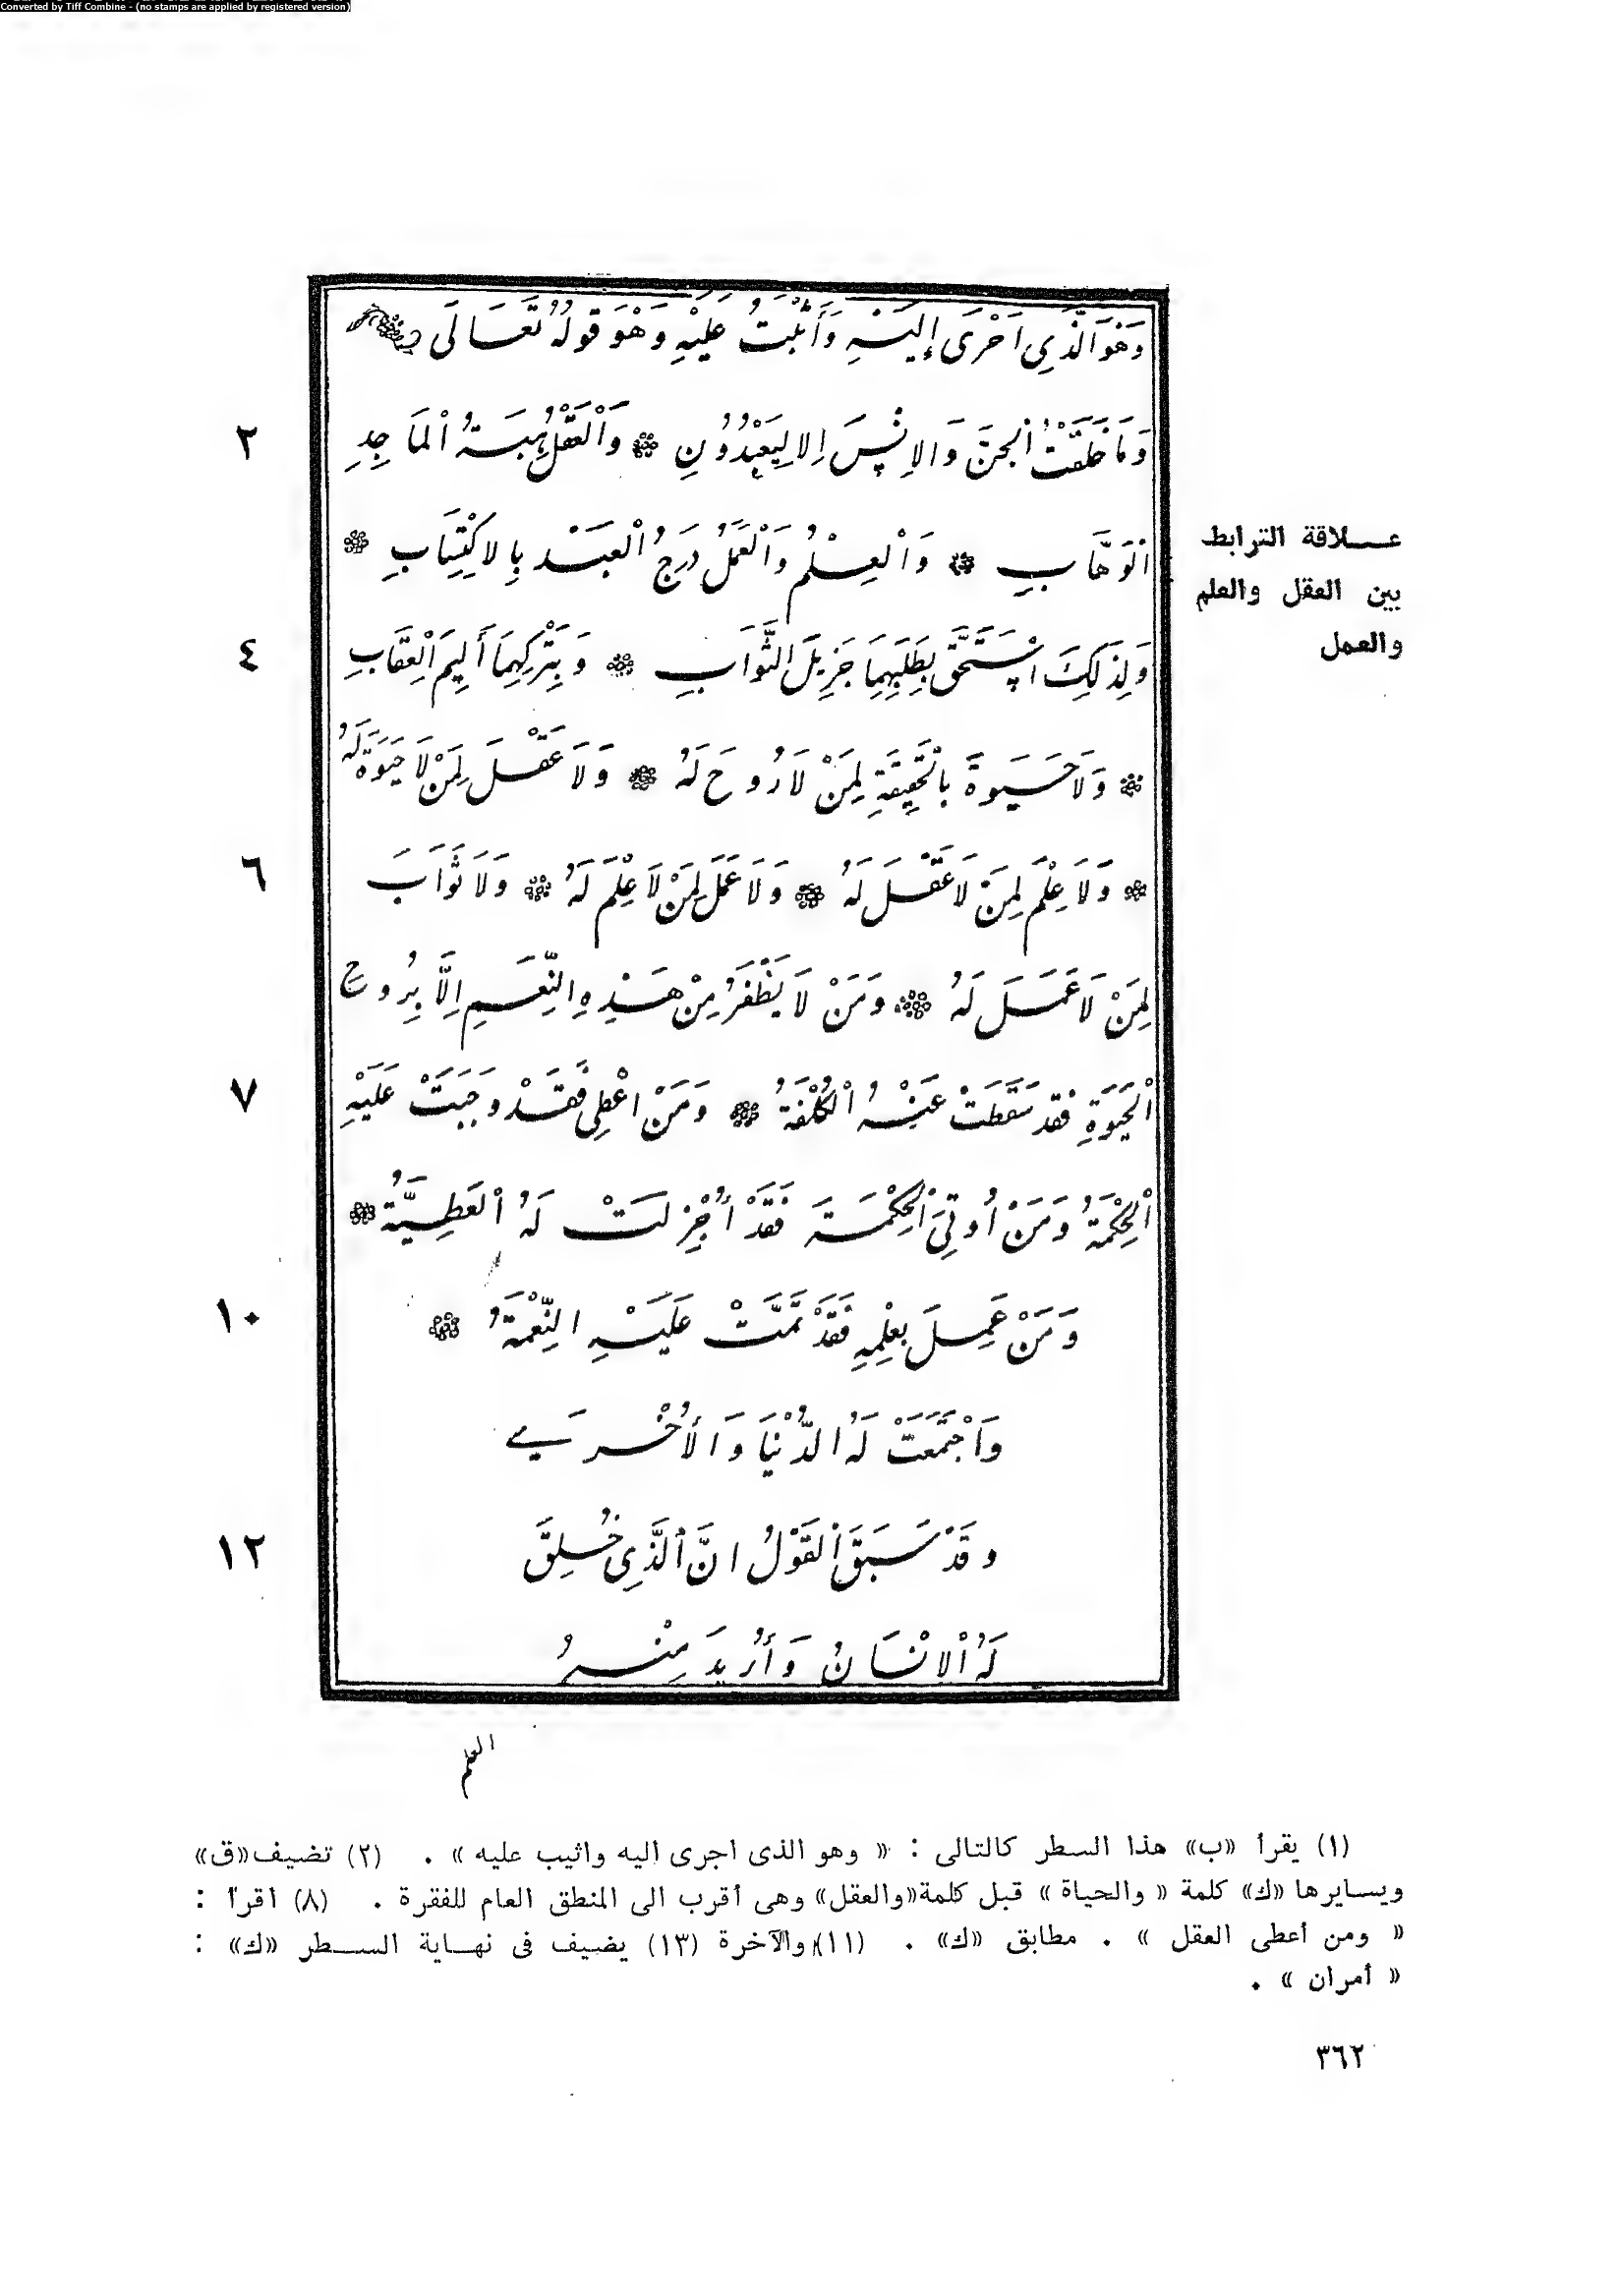 Converted by Tiff Combine - (no stamps are applied by registered version)
وَهُوَ الَّذِى اَحْرَى إِلَيْهِ وَأَثْبَتُ عَلَيْهِ وَهْوَ قَولُهُ تَعَالَى
وَمَا خَلَقْتُ اْلجِنَّ وَالإِنْسَ اِلا لِيَعْبُدُونِ ۞ وَاَلْعَقْلُ هِبَةُ اْلمَاجِدِ
٢
اْلوَهَّابِ ۞ وَاْلعِلْمُ وَاَلْعَمَلُ دَرَجُ اْلعَبْدِ بِالاكْتِسَابِ ۞
علاقة الترابط
بين العقل والعلم
والعمل
وَلِذَلِكَ اسْتَحَقَّ بِطَلَبِهِمَا جَزِيلَ الثَّوَابِ ۞ وَبِتَرْكِهِمَا أَلِيمَ اْلعِقَابِ
٤
۞ وَلَا حَيَوةَ بِالْحَقِيقَةِ لِمَنْ لَا رُوحَ لَهُ ۞ وَلَا عَقْلَ لِمَنْ لَا حَيَوةَ لَهُ
۞ وَلَا عِلْمَ لِمَنْ لَا عَقْلَ لَهُ ۞ وَلَا عَمَلَ لِمَنْ لَا عِلْمَ لَهُ ۞ وَلَا ثَوَابَ
٦
لِمَنْ لَا عَمَلَ لَهُ ۞ وَمَنْ لَا يَظْفَرُ مِنْ هَذِهِ النِّعَمِ اِلَّا بِرُوحِ
اْلحَيَوةِ فَقَد سَقَطَتْ عَنْهُ اْلكُلْفَةُ ۞ وَمَنْ اعْطِىَ فَقَدْ وَجَبَتْ عَلَيْهِ
٧
اْلحِكْمَةُ وَمَنْ أُوتِىَ اْلحِكْمَةَ فَقَدْ أُجْزِلَتْ لَهُ اْلعَطِيَّةُ ۞
وَمَنْ عَمِلَ بِعْلِمِهِ فَقَدْ تَمَّتْ عَلَيْهِ النِّعْمَةُ ۞
١٠
وَاَجْتَمَعَتْ لَهُ الدُّنْيَا وَالأُخْرَى
وقَدْ سَبَقَ اْلقَوْلُ انَّ اْلَّذِى خُلِقَ
١٢
لَهُ اْلانْسَانُ وَأُرِيدَ مِنْهُ
العلم
(١) يقرأ «ب» هذا السطر كالتالى : « وهو الذى اجرى اليه واثيب عليه » . (٢) تضيف «ق»
ويسايرها «ك» كلمة « والحياة » قبل كلمة «والعقل» وهى أقرب الى المنطق العام للفقرة . (٨) اقرأ :
« ومن أعطى العقل » . مطابق «ك» . (١١) والآخرة (١٣) يضيف فى نهاية السطر «ك» :
« أمران » .
٣٦٢